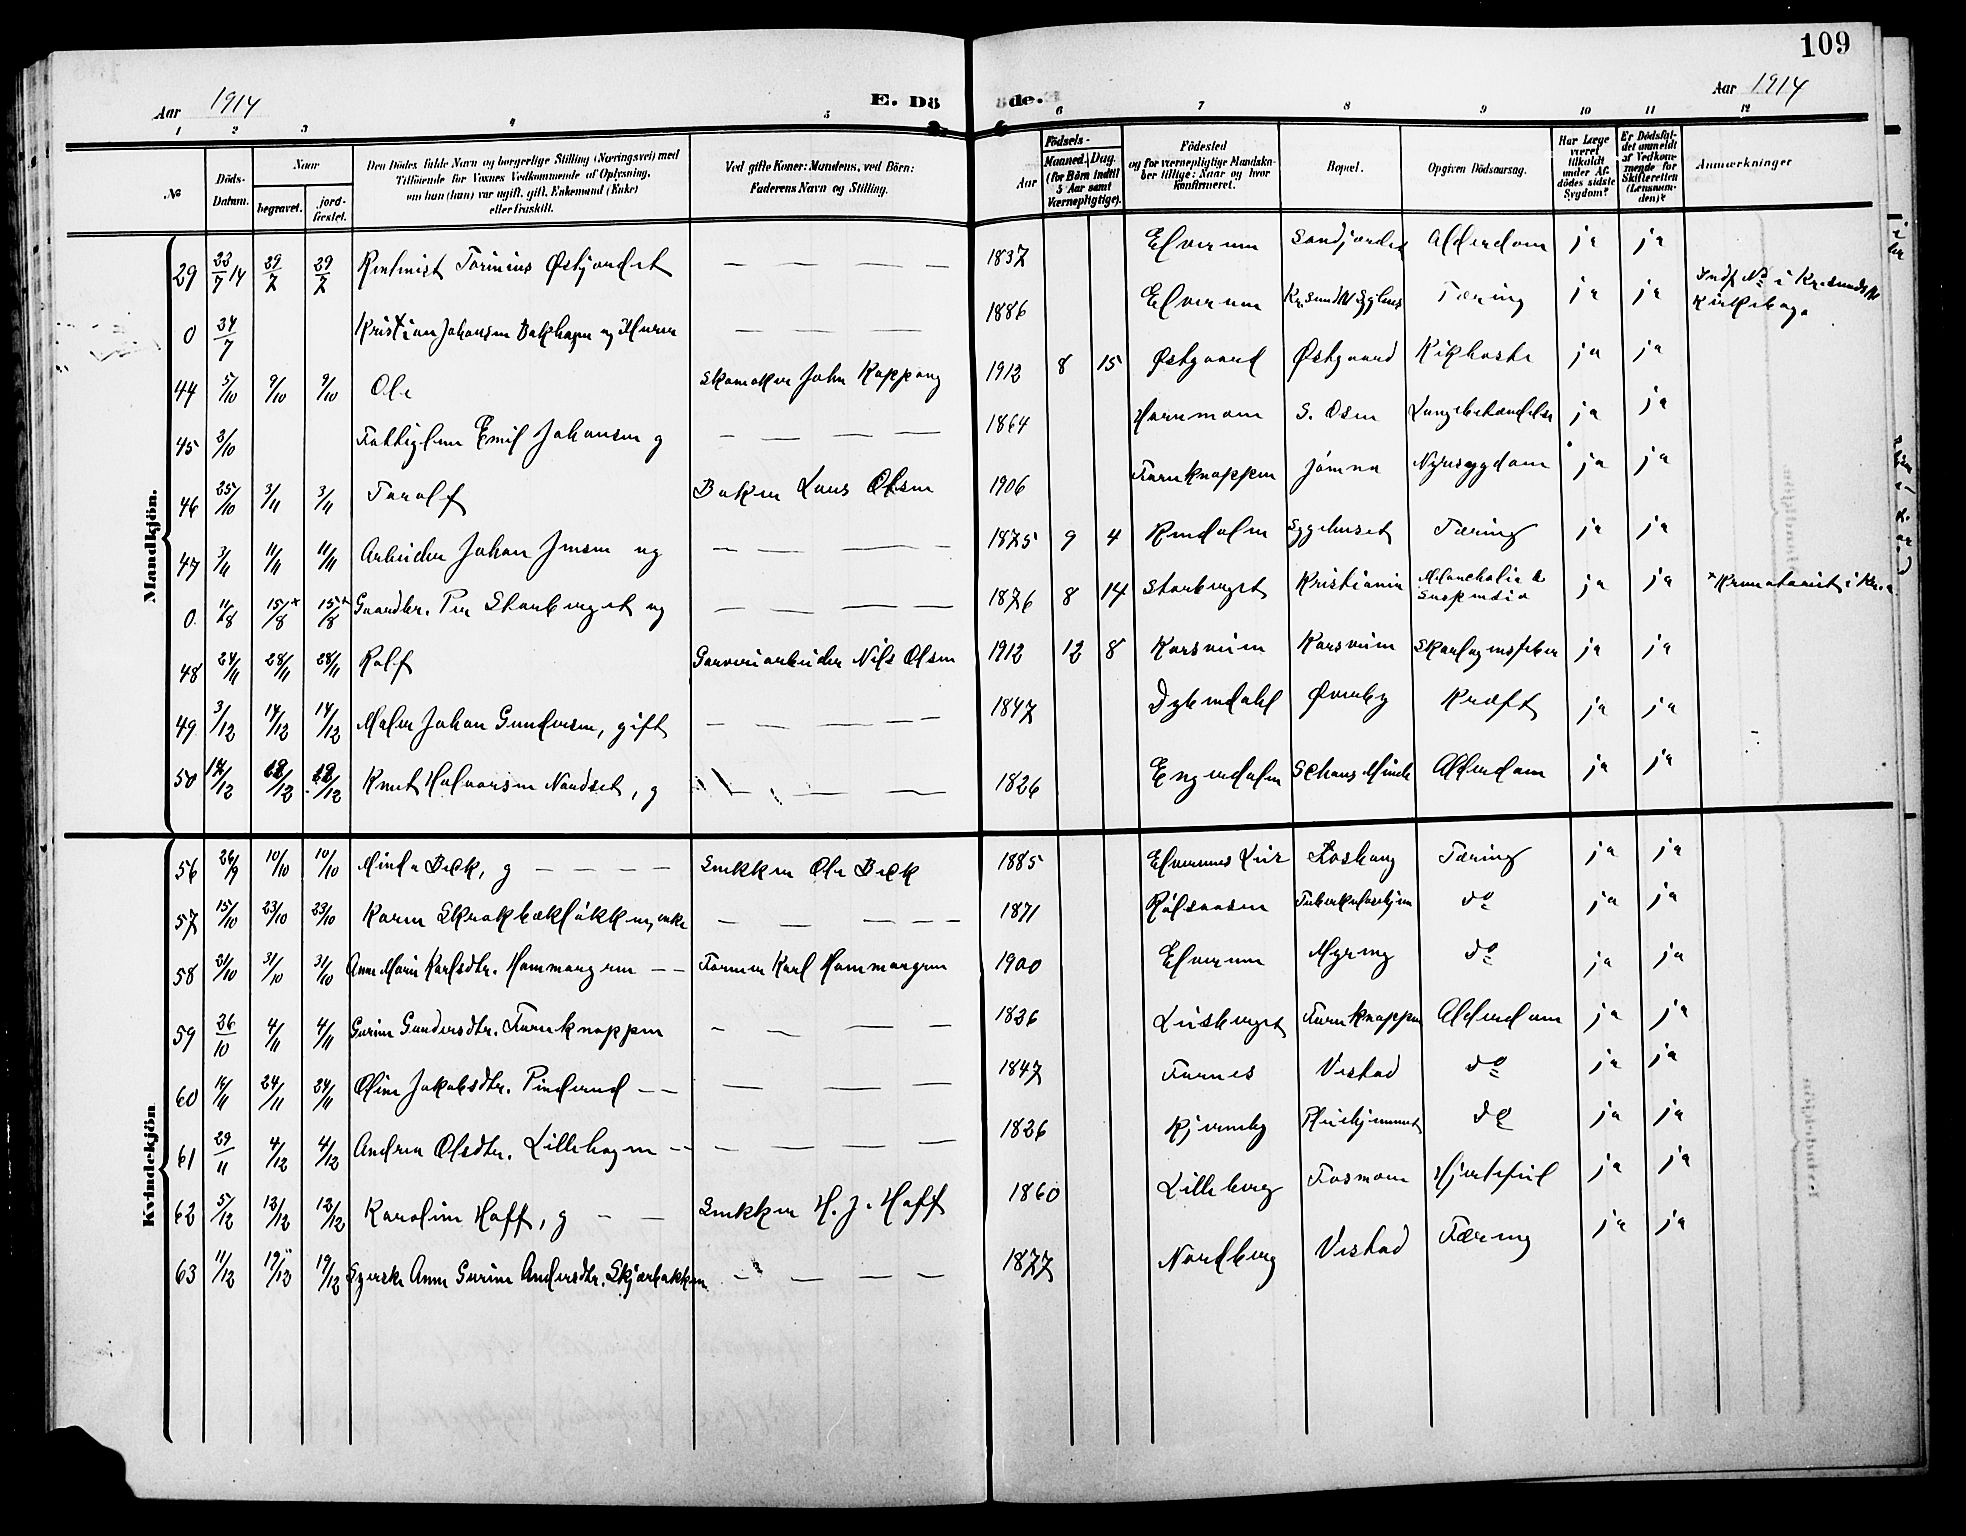 109
Aar 1914
E. Dö
de.
Aar 1914
1 2 3 4 5 6 7 8 9 10 11 12
No
Döds-Datum.
Naar
begravet.
jord-festet.
Den Dödes fulde Navn og borgerlige Stilling (Næringsvei) med
Tilföiende for Voxnes Vedkommende af Oplysning,
om han (hun) var ugift, gift, Enkemand (Enke)
eller fraskilt.
Ved gifte Koner: Mandens, ved Börn:
Faderens Navn og Stilling.
Födsels-
Aar
Maaned. Dag.
(for Börn indtil
5 Aar samt
Værnepligtige).
Födested
og for værnepligtige Mandska-
ber tillige: Naar og hvor
konfirmeret.
Bopæl.
Opgiven Dödsaarsag.
Har Læge
været
tilkaldt
under Af-
dödes sidste
Sygdom?
Er Dödsfal-
det anmeldt
af Vedkom-
mende for
Skifteretten
(Lensman-
den)?
Anmærkninger
Mandkjön.
29 23/7 14 29/7 29/7 Torinius Østjordet — — — — 1837 Elverum Sandjordet Alderdom ja ja
0 24/7 Kristian Johansen Bakhagen ug Murer — — — 1886 Elverum Tæring ja ja
44 5/10 9/10 9/10 Ole Skomaker John Koppang 1912 8 15 Østgaard Østgaard Kikhoste ja ja
45 3/10 Fattiglem Emil Johansen g — — — — 1864 Hornmoen S. Osen Lungebetændelse ja ja
46 25/10 3/11 3/11 Torolf Baker Laus Olsen 1906 Furuknappen Jömna Nyresygdom ja ja
47 3/11 11/11 11/11 Arbeider Johan Jensen ug — — — — 1875 9 4 Rendalen Sygehuset Tæring ja ja
0 11/8 15/8 x 15/8 x Gaardbr. Per Storberget ug — — — — 1876 8 14 Storberget Kristiania Melancholia &
Suspensio ja ja x Krematoriet i Kr.a
48 24/11 28/11 28/11 Rolf Garveriarbeider Nils Olsen 1912 12 8 Korsveien Korsveien Skarlagensfeber ja ja
49 3/12 14/12 14/12 Maler Johan Gundersen, gift — — — — 1847 Dybendahl Øvreby Kræft ja ja
50 14/12 19/12 19/12 Knut Halvorsen Nordset, g — — — 1826 Engerdalen Schous Minde Alderdom ja ja
Kvindekjön
56 26/9 10/10 10/10 Minda Bæk, g — — — — Snekker Ole Bæk 1885 Elverums Leir Roskang Tæring ja ja
57 15/10 23/10 23/10 Karen Skrakbækløkken, enke — — — — 1871 Rølsaasen Tuberkulosehjem do ja ja
58 21/10 31/10 31/10 Anne Marie Karlsdtr. Hammargren — — Former Karl Hammargren 1900 Elverum Myreng do ja ja
59 26/10 4/11 4/11 Gurine Gundersdtr. Furuknappen — — — — 1836 Lusberget Furuknappen Alderdom ja ja
60 16/11 24/11 24/11 Oline Jakobsdtr. Pinderud — — — — — 1847 Furnes Vestad do ja ja
61 29/11 4/12 4/12 Andrea Olsdtr. Lillehagen — — — — — — 1826 Kjerneby Pleiehjemmet do ja ja
62 5/12 12/12 12/12 Karoline Hoff, g — — Snekker H. J. Hoff 1860 Lilleberg Tosmoen Hjertefeil ja ja
63 11/12 19/12 19/12 Syerske Anne Gurine Andersdtr. Skjærbækken — — — — 1877 Nordberg Vestad Tæring ja ja